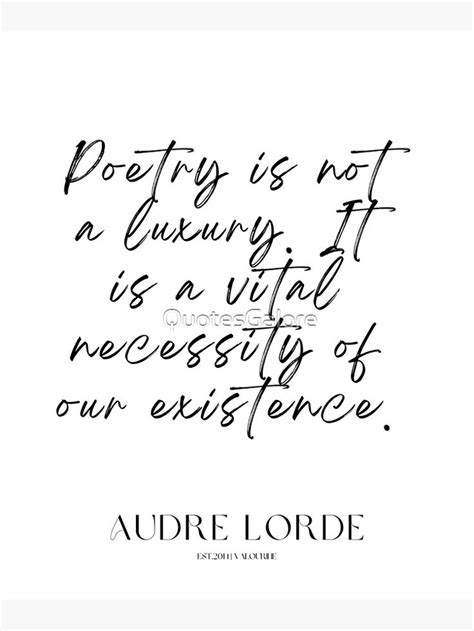 Poetry is not
a luxury. It
is a vital
QuotesGalore
necessity of
our existence.
AUDRE LORDE
EST.2014 | VALOURINE